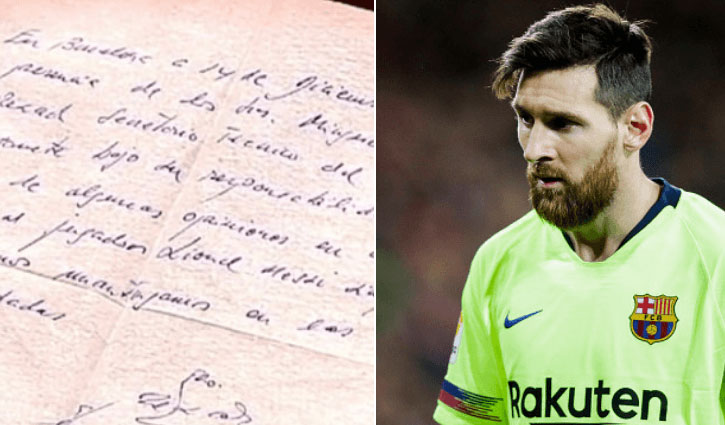 En Barcelona a 14 de Diciem
presencia de los Srs. Mingue
Rexad Secretario Tecnico del
bajo su responsabilid
de algunas opiniones en
al jugador Lionel Messi
nos mantengamos en las
FCB
Rakuten